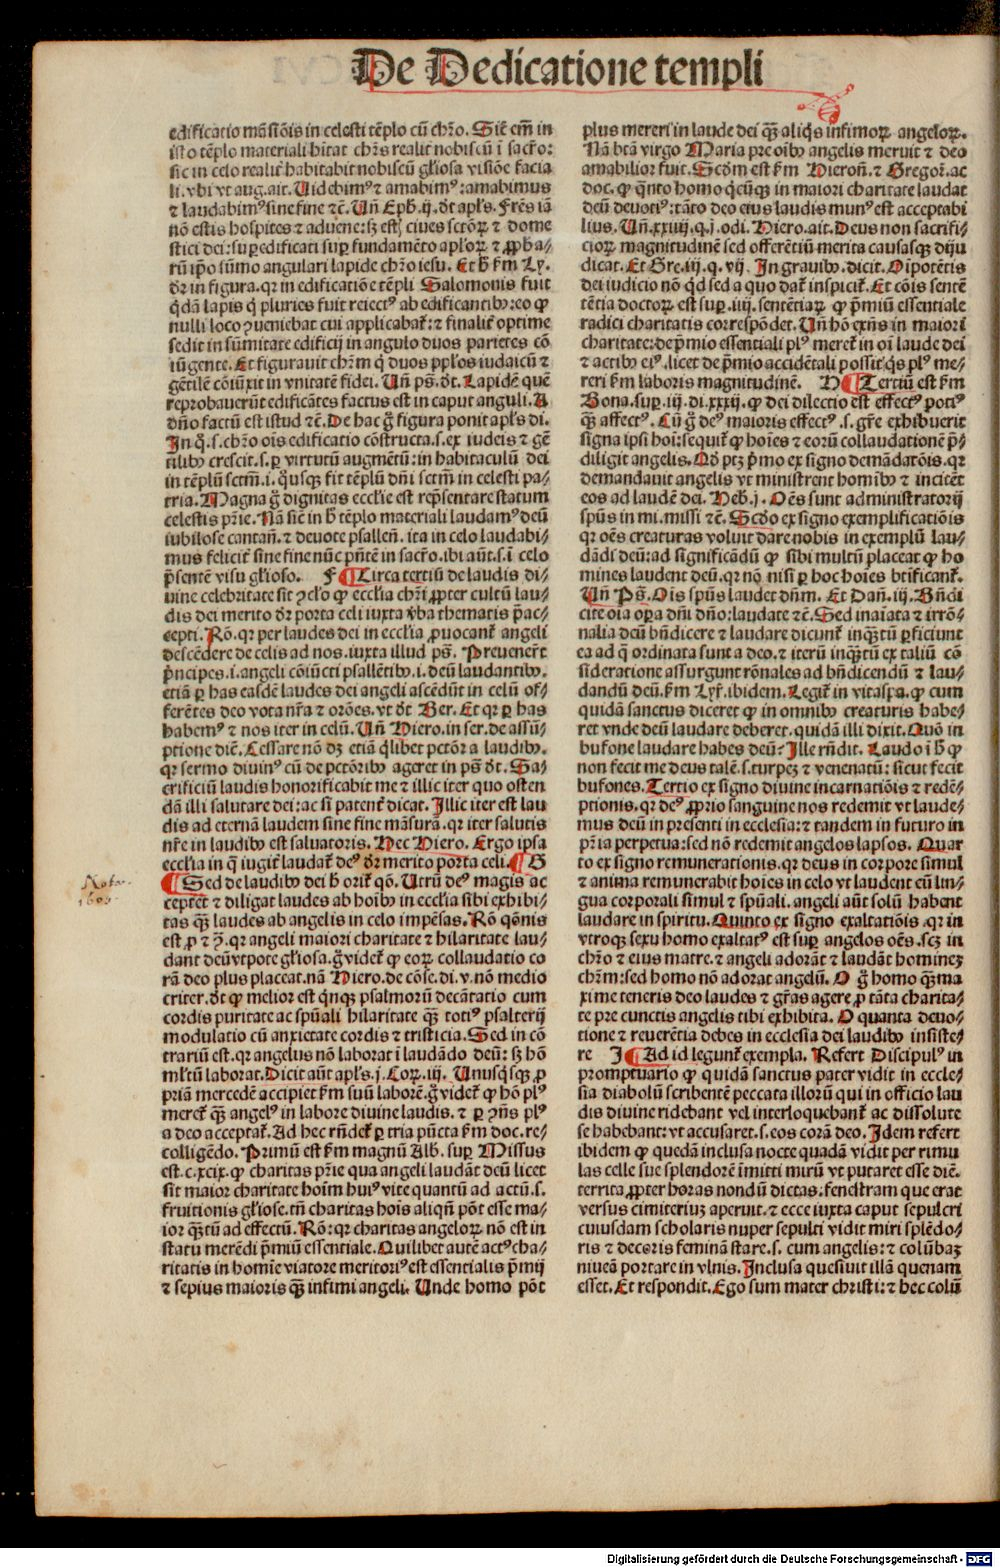 De Dedicatione templi
edificatio mãsiõis in celesti tẽplo cũ chr̃o. Sic̃ em̃ in
isto tẽplo materiali hĩtat chr̃s realit̃ nobiscũ ĩ sacr̃o:
sic in celo realit̃ habitabit nobiscũ gl̃iosa visiõe facia
li. vbi vt aug. ait. Uidebimꝰ ⁊ amabimꝰ: amabimus
⁊ laudabimꝰ sine fine ⁊c̃. Un̄ Eph̃. ij. dr̃t apl̃s. Fr̃es iã
nõ estis hospites ⁊ aduene: sʒ estꝭ ciues sctõꝝ ⁊ dome
stici dei: suꝑedificati suꝑ fundamẽto apl̃oꝝ ⁊ ꝓpha-
rũ ip̃o sũmo angulari lapide chr̃o iesu. Et h̃ ẜm Ly.
dr̃ in figura. qr in edificatiõe tẽpli Salomonis fuit
q̃dã lapis q̃ pluries fuit reiectꝰ ab edificantibꝰ: eo ꝙ
nulli loco ꝯueniebat cui applicabat̃: ⁊ finalit̃ optime
sedit in sũmitate edificij in angulo duos parietes cõ
iũgente. Et figurauit chr̃m q̃ duos pp̃los iudaicũ ⁊
gẽtilẽ cõiũxit in vnitatẽ fidei. Un̄ ps̃. dr̃t. Lapidẽ quẽ
reprobauerũt edificãtes factus est in caput anguli. A
dño factũ est istud ⁊c̃. De hac g̃ figura ponit apl̃s di.
In q̃. s. chr̃o oĩs edificatio cõstructa. s. ex iudeis ⁊ gẽ
tilibꝰ crescit. s. ꝑ virtutũ augmẽtũ: in habitaculũ dei
in tẽplũ sctm̃. i. q̃usqꝫ fit tẽplũ dñi sctm̃ in celesti pa-
tria. Magna g̃ dignitas eccl̃ie est rep̃sentare statum
celestis pr̃ie. Nã sic̃ in h̃ tẽplo materiali laudamꝰ deũ
iubilose cantañ. ⁊ deuote psalleñ. ita in celo laudabi-
mus felicit̃ sine fine nũc pñtẽ in sacr̃o. ibi aũt. s. ĩ celo
p̃sentẽ visu gl̃ioso. F ¶Circa tertiũ de laudis di-
uine celebritate sit ꝯclo̊ ꝙ eccl̃ia chr̃i ꝓpter cultũ lau-
dis dei merito dr̃ porta celi iuxta v̾ba thematis p̃ac-
cepti. Rõ. qr per laudes dei in eccl̃ia ꝓuocant̃ angeli
descẽdere de celis ad nos. iuxta illud ps̃. Preuener̃t
p̃ncipes. i. angeli cõiũcti psallẽtibꝰ. i. deũ laudantibꝰ.
etiã ꝑ has easdẽ laudes dei angeli ascẽdũt in celũ of-
ferẽtes deo vota nr̃a ⁊ or̃oẽs. vt dr̃t Ber. Et qr ꝑ has
habemꝰ ⁊ nos iter in celũ. Un̄ Hiero. in ser. de assũ-
ptione diẽ. Cessare nõ dʒ etiã q̃libet pctõr a laudibꝰ.
qr sermo diuinꝰ cũ de pctõribꝰ ageret in ps̃ dr̃t. Sa-
crificiũ laudis honorificabit me ⁊ illic iter quo osten
dã illi salutare dei: ac si patent̃ dicat. Illic iter est lau
dis ad eternã laudem sine fine mãsurã. qr iter salutis
nr̃e in laudibꝰ est saluatoris. Hec Hiero. Ergo ipsa
eccl̃ia in q̃ iugit̃ laudat̃ deꝰ dr̃ merito porta celi. ¶G
¶Sed de laudibꝰ dei h̃ orit̃ qõ. Utrũ deꝰ magis ac
ceptet̃ ⁊ diligat laudes ab hoĩbꝰ in eccl̃ia sibi exhibi-
tas qꝫ laudes ab angelis in celo impẽsas. Rõ qõnis
est ꝓ ⁊ ꝯ̃. qr angeli maiori charitate ⁊ hilaritate lau-
dant deũ vtpote gl̃iosa. g̃ videt̃ ꝙ eoꝝ collaudatio co
rã deo plus placeat. nã Hiero. de cõse. di. v. nõ medio
criter. dr̃t ꝙ melior est q̃nqꝫ psalmorũ decãtatio cum
cordis puritate ac spũali hilaritate qꝫ totiꝰ psalterij
modulatio cũ anxietate cordis ⁊ tristicia. Sed in cõ
trariũ est. qr angelus nõ laborat ĩ laudãdo deũ: sʒ hõ
ml̃tũ laborat. Dicit aũt apl̃s. j. Coꝝ. iij. Unusq̃sqꝫ ꝓ
priã mercedẽ accipiet ẜm suũ laborẽ. g̃ videt̃ ꝙ hõ plꝰ
meret̃ qꝫ angelꝰ in labore diuine laudis. ⁊ ꝑ ꝯñs plꝰ
a deo acceptat̃. Ad hec rñdet̃ ꝑ tria pũcta ẜm doc. re-
colligẽdo. Primũ est ẜm magnũ Alb̃. suꝑ Missus
est. c. xcix. ꝙ charitas pr̃ie qua angeli laudãt deũ licet
sit maior charitate hoĩm huiꝰ vite quantũ ad actũ. s.
fruitionis gl̃iose. tñ charitas hoĩs aliqñ põt esse ma-
ior qꝫtũ ad effectũ. Rõ: qr charitas angeloꝝ nõ est in
statu merẽdi p̃miũ essentiale. Quilibet autẽ actꝰ cha-
ritatis in homĩe viatore meritoriꝰ est essentialis p̃mij
⁊ sepius maioris qꝫ infimi angeli. Unde homo põt
plus mereri in laude dei qꝫ aliq̃s infimoꝝ angeloꝝ.
Nã btã virgo Maria pre oĩbꝰ angelis meruit ⁊ deo
amabilior fuit. Scdm̃ est ẜm Hieroñ. ⁊ Gregoř. ac
doc. ꝙ q̃nto homo q̃cũqꝫ in maiori charitate laudat
deũ deuotiꝰ: tãto deo eius laudis munꝰ est acceptabi
lius. Un̄. xxiiij. q. j. odi. Hiero. ait. Deus non sacrifi-
cioꝝ magnitudinẽ sed offerẽtiũ merita causasqꝫ diju
dicat. Et Gre. iij. q. vij. In grauibꝰ. dicit. Oĩpotẽtis
dei iudicio nõ q̃d sed a quo dat̃ inspicit̃. Et cõis sentẽ
tẽtia doctoꝝ est suꝑ. iiij. sentẽtiaꝝ ꝙ p̃miũ essentiale
radici charitatis correspõdet. Un̄ hõ exñs in maiori
charitate: de p̃mio essentiali plꝰ meret̃ in oĩ laude dei
⁊ actibꝰ eiꝰ. licet de p̃mio accidẽtali possit q̃s plꝰ me-
reri ẜm laboris magnitudinẽ. H ¶Tertiũ est ẜm
Bona. suꝑ. iij. di. xxxij. ꝙ dei dilectio est effectꝰ potiꝰ
qꝫ affectꝰ. Cũ g̃ deꝰ maioris effectꝰ. s. gr̃e exhibuerit
signa ipsi hoĩ: sequit̃ ꝙ hoĩes ⁊ eorũ collaudationẽ p̃-
diligit angelis. Qd̃ ptʒ p̃mo ex signo demãdatõis. qr
demandauit angelis vt ministrent homĩbꝰ ⁊ incitẽt
eos ad laudẽ dei. Heb. j. Oẽs sunt administratorij
spũs in mi. missi ⁊c̃. Scdo̊ ex signo exemplificatiõis
qr oẽs creaturas voluit dare nobis in exemplũ lau-
dãdi deũ: ad significãdũ ꝙ sibi multũ placeat ꝙ ho
mines laudent deũ. qr nõ nisi ꝑ hoc hoĩes btĩficant̃.
Un̄ Ps̃. Oĩs spũs laudet dñm. Et Dañ. iij. Bñdi
cite oĩa oꝑa dñi dño: laudate ⁊c̃. Sed inaĩata ⁊ irrõ-
nalia deũ bñdicere ⁊ laudare dicunt̃ inqꝫtũ ꝑficiunt
ea ad q̃ ordinata sunt a deo. ⁊ iterũ inqꝫtũ ex taliũ cõ
sideratione assurgunt rõnales ad bñdicendũ ⁊ lau-
dandũ deũ. ẜm Lyr̃. ibidem. Legit̃ in vitaspa. ꝙ cum
quidã sanctus diceret ꝙ in omnibꝰ creaturis habe-
ret vnde deũ laudare deberet. quidã illi dixit. Quõ in
bufone laudare habes deũ? Ille rñdit. Laudo ĩ h̃ ꝙ
non fecit me deus talẽ. s. turpeʒ ⁊ venenatũ: sicut fecit
bufones. Tertio ex signo diuine incarnatiõis ⁊ redẽ-
ptionis. qr deꝰ ꝓprio sanguine nos redemit vt laude-
mus deũ in presenti in ecclesia: ⁊ tandem in futuro in
pr̃ia perpetua: sed nõ redemit angelos lapsos. Quar
to ex signo remunerationis. qr deus in corpore simul
⁊ anima remunerabit hoĩes in celo vt laudent eũ lin-
gua corporali simul ⁊ spũali. angeli aũt solũ habent
laudare in spiritu. Quinto ex signo exaltatiõis. qr in
vtroqꝫ sexu homo exaltatꝰ est suꝑ angelos oẽs. scʒ in
chr̃o ⁊ eius matre. ⁊ angeli adorãt ⁊ laudãt homineʒ
chr̃m: sed homo nõ adorat angelũ. O g̃ homo qꝫma
xime teneris deo laudes ⁊ gr̃as agere ꝓ tãta charita-
te pre cunctis angelis tibi exhibita. O quanta deuo-
tione ⁊ reuerẽtia debes in ecclesia dei laudibꝰ insiste-
re I ¶Ad id legunt̃ exempla. Refert Discipulꝰ in
promptuario ꝙ quidã sanctus pater vidit in eccle-
sia diabolũ scribentẽ peccata illorũ qui in officio lau
dis diuine ridebant vel interloquebant̃ ac dissolute
se habebant: vt accusaret. s. eos corã deo. Idem refert
ibidem ꝙ quedã inclusa nocte quadã vidit per rimu
las celle sue splendorẽ ĩmitti mirũ vt putaret esse diẽ.
territa ꝓpter horas nondũ dictas: fenestram que erat
versus cimiteriuʒ aperuit. ⁊ ecce iuxta caput sepulcri
cuiusdam scholaris nuper sepulti vidit miri splẽdo-
ris ⁊ decoris feminã stare. s. cum angelis: ⁊ colũbaʒ
niueã portare in vlnis. Inclusa quesiuit illã quenam
esset. Et respondit. Ego sum mater christi: ⁊ hec colũ
Digitalisierung gefördert durch die Deutsche Forschungsgemeinschaft - DFG